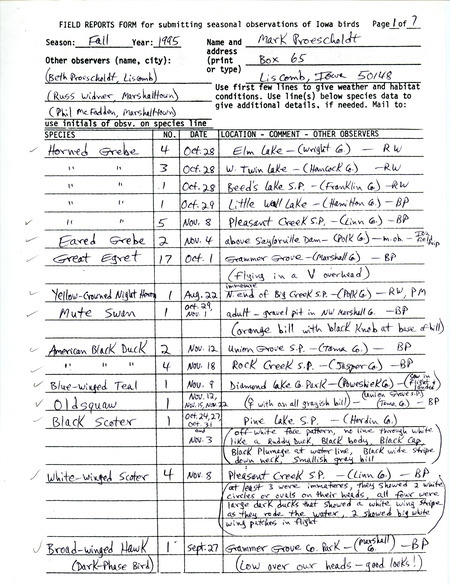 FIELD REPORTS FORM for submitting seasonal observations of Iowa birds Page 1 of 7
Season: Fall Year: 1995 Name and address (print or type) Mark Proescholdt
Other observers (name, city): Box 65
(Beth Proescholdt, Liscomb) Liscomb, Iowa 50148
(Russ Widner, Marshalltown) Use first few lines to give weather and habitat
(Phil McFadden, Marshalltown) conditions. Use line(s) below species data to
give additional details, if needed. Mail to:
use initials of obsv. on species line
SPECIES NO. DATE LOCATION - COMMENT - OTHER OBSERVERS
Horned Grebe 4 Oct. 28 Elm Lake - (Wright Co.) - RW
" " 3 Oct. 28 W. Twin Lake - (Hancock Co.) - RW
" " 1 Oct. 28 Beed's Lake S.P. - (Franklin Co.) - RW
" " 1 Oct. 29 Little Wall Lake - (Hamilton Co.) - BP
" " 5 Nov. 8 Pleasant Creek S.P. - (Linn Co.) - BP
Eared Grebe 2 Nov. 4 above Saylorville Dam - (Polk Co.) - m.ob.
Great Egret 17 Oct. 1 Grammer Grove - (Marshall Co.) - BP
(flying in a V overhead)
Yellow-Crowned Night Heron 1 Aug. 22 immature N. end of Big Creek S.P. - (Polk Co.) - RW, PM
Mute Swan 1 Oct. 29, Nov. 1 adult - gravel pit in NW Marshall Co. - BP
(orange bill with black knob at base of bill)
American Black Duck 2 Nov. 12 Union Grove S.P. - (Tama Co.) - BP
" " " 4 Nov. 18 Rock Creek S.P. - (Jasper Co.) - BP
Blue-winged Teal 1 Nov. 9 Diamond Lake Co. Park - (Poweshiek Co.)
Oldsquaw 1 Nov. 12, Nov. 15, Nov. 22 (♀ with an all grayish bill) - (Union Grove S.P. Tama Co.) - BP
Black Scoter 1 Oct. 24, 27, Oct. 31 and Nov. 3 Pine Lake S.P. - (Hardin Co.)
(off white face pattern, no line through white
like a Ruddy Duck, Black body, Black Cap
Black Plumage at water line, Black wide stripe
down neck, Smallish gray bill)
White-winged Scoter 4 Nov. 8 Pleasant Creek S.P. - (Linn Co.) - BP
(at least 3 were immatures, they showed 2 white
circles or ovals on their heads, all four were
large dark ducks that showed a white wing stripe
as they rode the water, 2 showed big white
wing patches in flight)
Broad-winged Hawk 1 Sept. 27 Grammer Grove Co. Park - (Marshall Co.) - BP
(Dark-Phase Bird) (Low over our heads - good looks!)